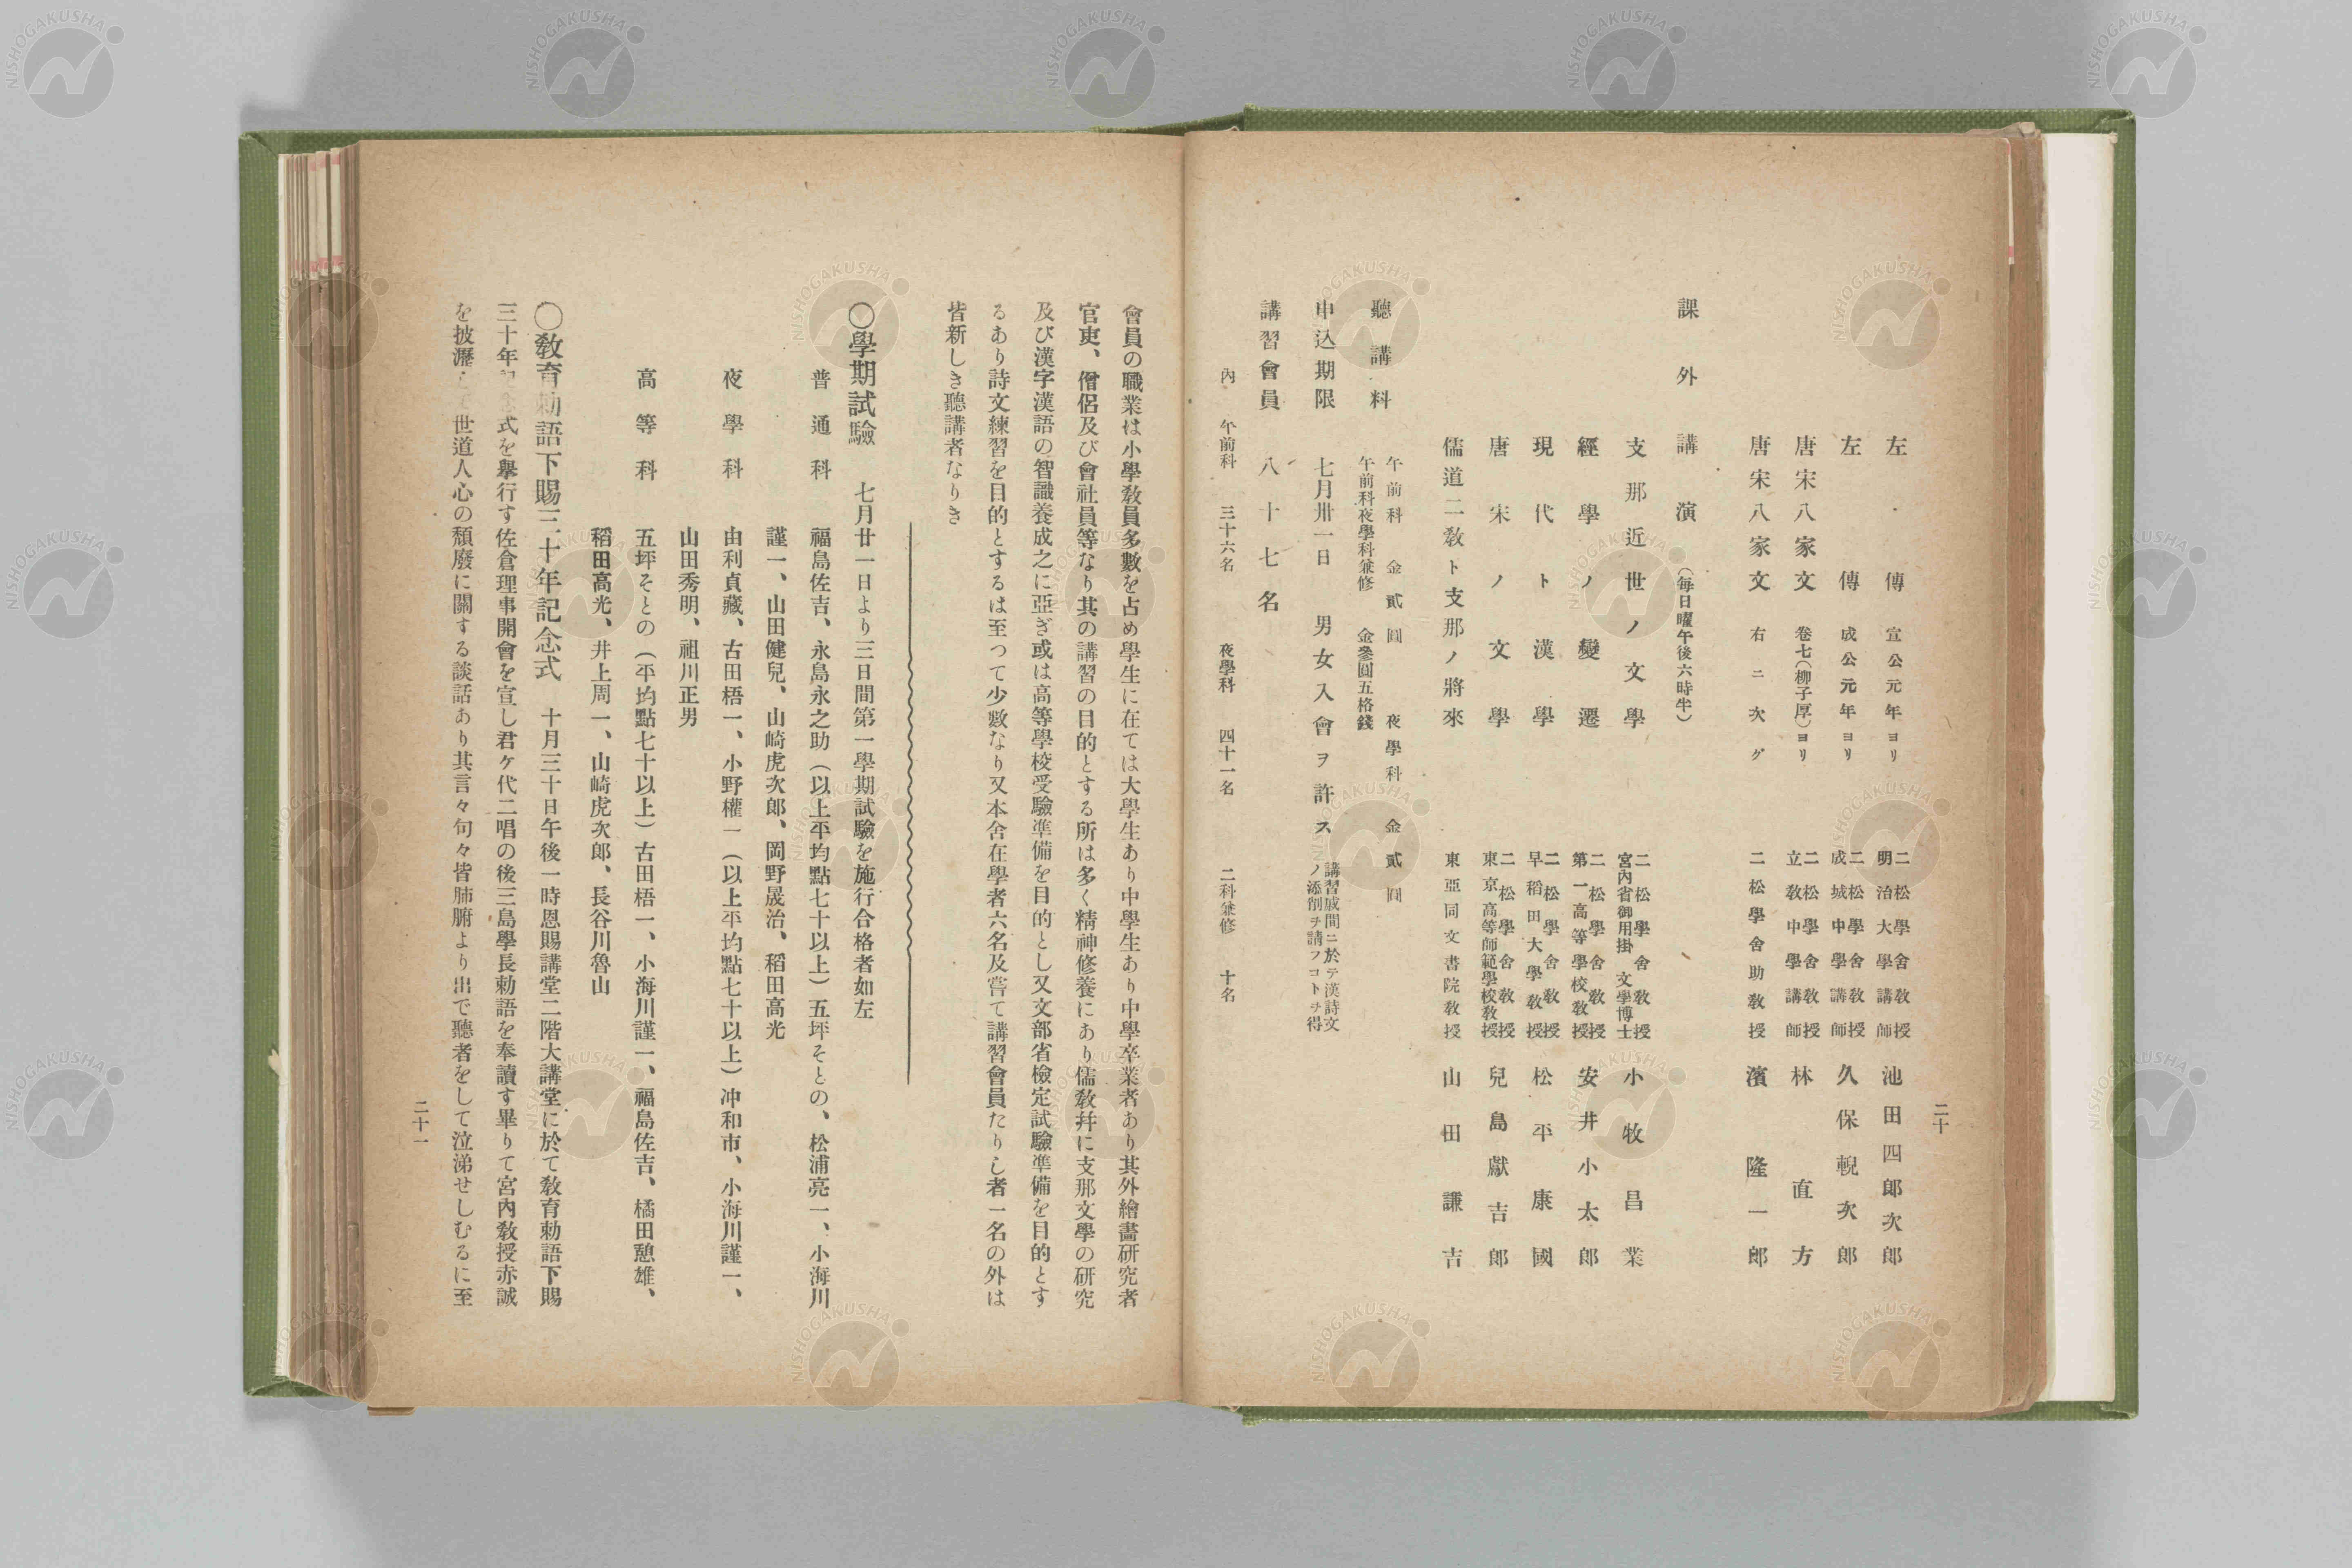 左傳 宣公元年ヨリ 二松學舍敎授 明治大學講師 池田四郎次郎
左傳 成公元年ヨリ 二松學舍敎授 成城中學講師 久保輗次郎
唐宋八家文 卷七(柳子厚)ヨリ 二松學舍敎授 立敎中學講師 林直方
唐宋八家文 右ニ次グ 二松學舍助敎授 濱隆一郎
課外講演 (每日曜午後六時半)
支那近世ノ文學 二松學舍敎授 宮內省御用掛 文學博士 小牧昌業
經學ノ變遷 二松學舍敎授 第一高等學校敎授 安井小太郎
現代ト漢學 二松學舍敎授 早稻田大學敎授 松平康國
唐宋ノ文學 二松學舍敎授 東京高等師範學校敎授 兒島獻吉郎
儒道二敎ト支那ノ將來 東亞同文書院敎授 山田謙吉
聽講料 午前科 金貳圓 夜學科 金貳圓
午前科夜學科兼修 金參圓五拾錢
申込期限 七月卅一日 男女入會ヲ許ス 講習間ニ於テ漢詩文ノ添削ヲ請フコトヲ得
講習會員 八十七名
內 午前科 三十六名 夜學科 四十一名 二科兼修 十名
二十
會員の職業は小學敎員多數を占め學生に在ては大學生あり中學生あり中學卒業者あり其外繪畫硏究者
官吏、僧侶及び會社員等なり其の講習の目的とする所は多く精神修養にあり儒敎幷に支那文學の硏究
及び漢字漢語の智識養成之に亞ぎ或は高等學校受驗準備を目的とし又文部省檢定試驗準備を目的とす
るあり詩文練習を目的とするは至つて少數なり又本舍在學者六名及嘗て講習會員たりし者一名の外は
皆新しき聽講者なりき
〇學期試驗 七月廿一日より三日間第一學期試驗を施行合格者如左
普通科 福島佐吉、永島永之助(以上平均點七十以上)五坪そとの、松浦亮一、小海川
謹一、山田健兒、山崎虎次郎、岡野晟治、稻田高光
夜學科 由利貞藏、古田梧一、小野權一(以上平均點七十以上)冲和市、小海川謹一、
山田秀明、祖川正男
高等科 五坪そとの(平均點七十以上)古田梧一、小海川謹一、福島佐吉、橘田憩雄、
稻田高光、井上周一、山崎虎次郎、長谷川魯山
〇敎育勅語下賜三十年記念式 十月三十日午後一時恩賜講堂二階大講堂に於て敎育勅語下賜
三十年記念式を擧行す佐倉理事開會を宣し君ケ代二唱の後三島學長勅語を奉讀す畢りて宮內敎授赤誠
を披瀝して世道人心の頽廢に關する談話あり其言々句々皆肺腑より出で聽者をして泣涕せしむるに至
二十一
NISHOGAKUSHA